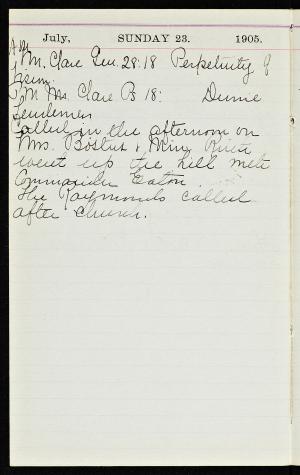 July, SUNDAY 23. 1905.
A.M.
Mr. Clare Gen. 28:18 Perpetuity of
P.M. Mr. Clare Ps 18:
Called in the afternoon on
Mrs. & Miss
went up the hill met
Commander Eaton.
The Raymonds called
after church.